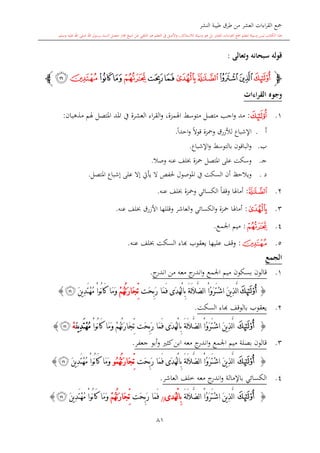 جمع القراءات العشر من طرق طيبة النشر
قوله سبحانه وتعالى :
﴿ أُوْلَٰٓئِكَ ٱلَّذِينَ ٱشْتَرَوُاْ ٱلضَّلَٰلَةَ بِٱلْهُدَىٰ فَمَا رَبِحَت تِّجَٰرَتُهُمْ وَمَا كَانُواْ مُهْتَدِينَ ١٦ ﴾
وجوه القراءات
١. أُوْلَٰٓئِكَ: مد واجب متصل متوسط الهمزة، والقراء العشرة في المد المتصل لهم مذهبان:
أ . الإشباع للأزرق وحمزة قولاً واحداً.
ب. والباقون بالتوسط والإشباع.
جـ. وسكت على المتصل حمزة بخلف عنه وصلا.
د . ويلاحظ أن السكت في الموصول لحفص لا يأتي إلا على إشباع المتصل.
٢. ٱلضَّلَٰلَةَ: أمالها وقفاً الكسائي وحمزة بخلف عنه.
٣. بِٱلْهُدَىٰ: أمالها حمزة والكسائي والعاشر وقللها الأزرق بخلف عنه.
٤. تِّجَٰرَتُهُمْ: ميم الجمع.
٥. مُهْتَدِينَ: وقف عليها يعقوب بهاء السكت بخلف عنه.
الجمع
١. قالون بسكون ميم الجمع واندرج معه من اندرج.
﴿ أُوْلَٰٓئِكَ ٱلَّذِينَ ٱشْتَرَوُاْ ٱلضَّلَٰلَةَ بِٱلْهُدَىٰ فَمَا رَبِحَت تِّجَٰرَتُهُمْ وَمَا كَانُواْ مُهْتَدِينَ ١٦ ﴾
٢. يعقوب بالوقف بهاء السكت.
﴿ أُوْلَٰٓئِكَ ٱلَّذِينَ ٱشْتَرَوُاْ ٱلضَّلَٰلَةَ بِٱلْهُدَىٰ فَمَا رَبِحَت تِّجَٰرَتُهُمْ وَمَا كَانُواْ مُهْتَدِينَهْ ١٦ ﴾
٣. قالون بصلة ميم الجمع واندرج معه ابن كثير وأبو جعفر.
﴿ أُوْلَٰٓئِكَ ٱلَّذِينَ ٱشْتَرَوُاْ ٱلضَّلَٰلَةَ بِٱلْهُدَىٰ فَمَا رَبِحَت تِّجَٰرَتُهُمُو وَمَا كَانُواْ مُهْتَدِينَ ١٦ ﴾
٤. الكسائي بالإمالة واندرج معه خلف العاشر.
﴿ أُوْلَٰٓئِكَ ٱلَّذِينَ ٱشْتَرَوُاْ ٱلضَّلَٰلَةَ بِٱلْهُدَىٰ فَمَا رَبِحَت تِّجَٰرَتُهُمْ وَمَا كَانُواْ مُهْتَدِينَ ١٦ ﴾
٨١